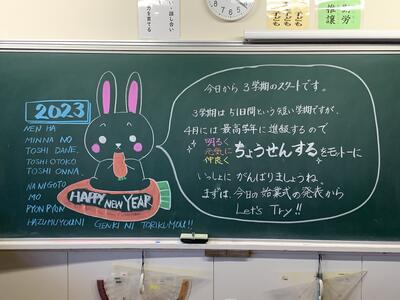 いい話し合い
力を育てる
子ども
子ども
子ども
勤労
推譲
2023
NEN HA
MINNA NO
TOSHI DANE,
TOSHIOTOKO
TOSHI ONNA,
NANIGOTO
MO
PYON PYON
HAZUMUYOUNI GENKI NI TORIKUMOU!!
HAPPY NEW YEAR
今日から3学期のスタートです。
3学期は51日間という短い学期ですが、
4月には最高学年に進級するので
明るく
元気に
仲良く
ちょうせんするをモットーに
いっしょにがんばりましょうね
まずは、今日の始業式の発表から
Let's Try!!